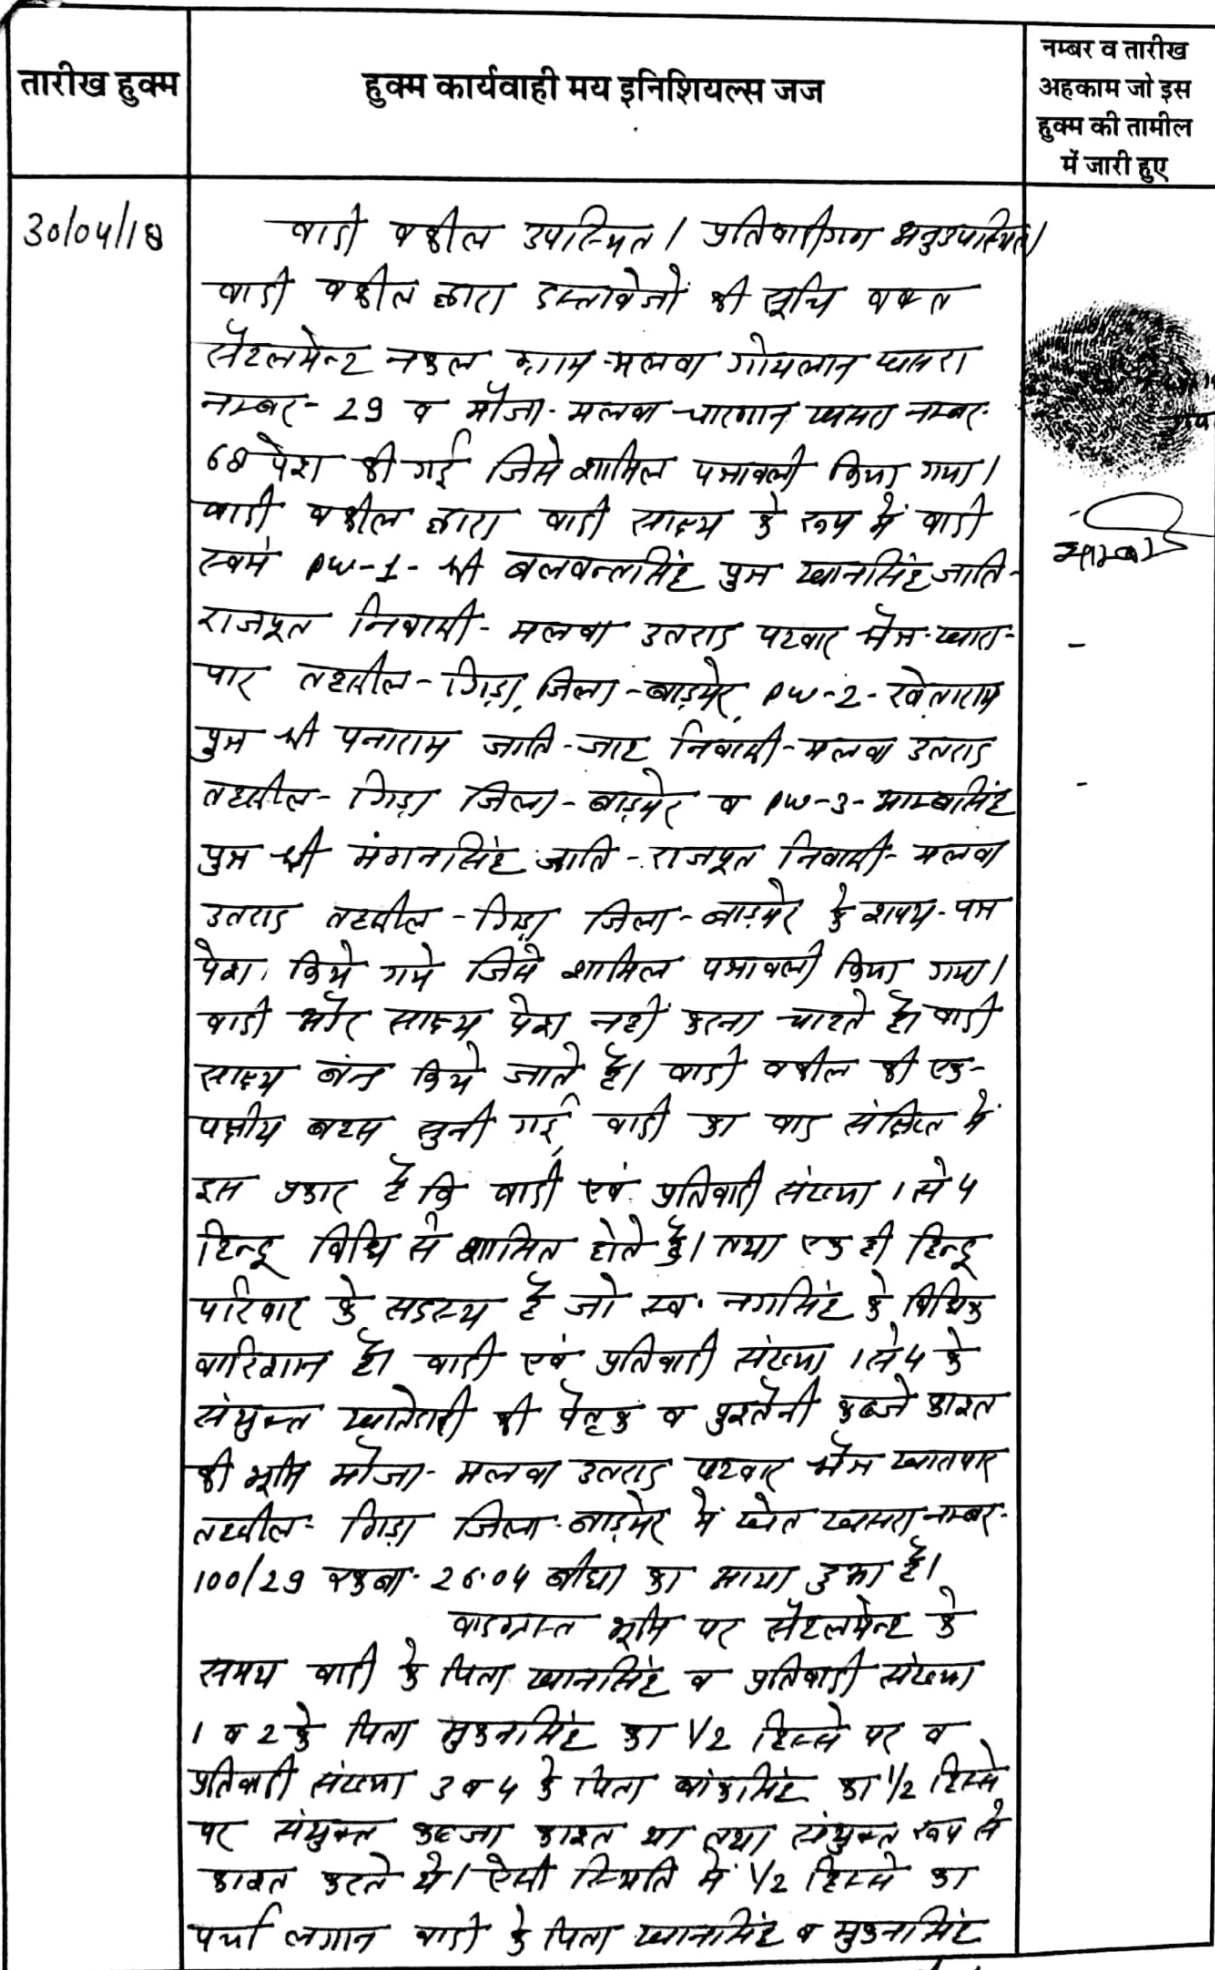 तारीख हुक्म
हुक्म कार्यवाही मय इनिशियल्स जज
नम्बर व तारीख
अहकाम जो इस
हुक्म की तामील
में जारी हुए
30/04/18
वादी वकील उपस्थित। प्रतिवादीगण अनुउपस्थित।
वादी वकील द्वारा दस्तावेजों की सूचि वक्त
सैटलमेन्ट नकल ग्राम मलवा गोयलान खसरा
नम्बर- 29 व मौजा- मलवा चारणान खसरा नम्बर-
68 पेश की गई जिसे शामिल पत्रावली किया गया।
वादी वकील द्वारा वादी साक्ष्य के रूप में वादी
स्वयं PW-1- श्री बलवन्तसिंह पुत्र खानसिंह जाति-
राजपूत निवासी- मलवा उतराद पटवार क्षैत्र- खारा-
पार तहसील- गिड़ा, जिला- बाड़मेर, PW-2- खेताराम
पुत्र श्री पनाराम जाति- जाट निवासी- मलवा उतराद
तहसील- गिड़ा जिला- बाड़मेर व PW-3- आम्बसिंह
पुत्र श्री मंगनसिंह जाति- राजपूत निवासी- मलवा
उतराद तहसील- गिड़ा जिला- बाड़मेर के शपथ-पत्र
पेश किये गये जिसे शामिल पत्रावली किया गया।
वादी और साक्ष्य पेश नहीं करना चाहते है। वादी
साक्ष्य बंन्द किये जाते है। वादी वकील की एक-
पक्षीय बहस सुनी गई, वादी का वाद संक्षिप्त में
इस प्रकार है कि वादी एवं प्रतिवादी संख्या 1 से 4
हिन्दू विधि से शासित होते है। तथा एक ही हिन्दू
परिवार के सदस्य है जो स्व. नगसिंह के विधिक
वारिशान है। वादी एवं प्रतिवादी संख्या 1 से 4 के
संयुक्त खातेदारी की पैतृक व पुश्तैनी कब्जे काश्त
की भूमि मौजा- मलवा उतराद पटवार क्षैत्र खारापार
तहसील- गिड़ा जिला- बाड़मेर में खेत खसरा नम्बर-
100/29 रकबा- 26.04 बीघा का आया हुआ है।
वादग्रस्त भूमि पर सैटलमेन्ट के
समय वादी के पिता खानसिंह व प्रतिवादी संख्या
1 व 2 के पिता मुकनसिंह का 1/2 हिस्से पर व
प्रतिवादी संख्या 3 व 4 के पिता बांकसिंह का 1/2 हिस्से
पर संयुक्त कब्जा काश्त था तथा संयुक्त रूप से
काश्त करते थे। ऐसी स्थिति में 1/2 हिस्से का
पर्चा लगान वादी के पिता खानसिंह व मुकनसिंह